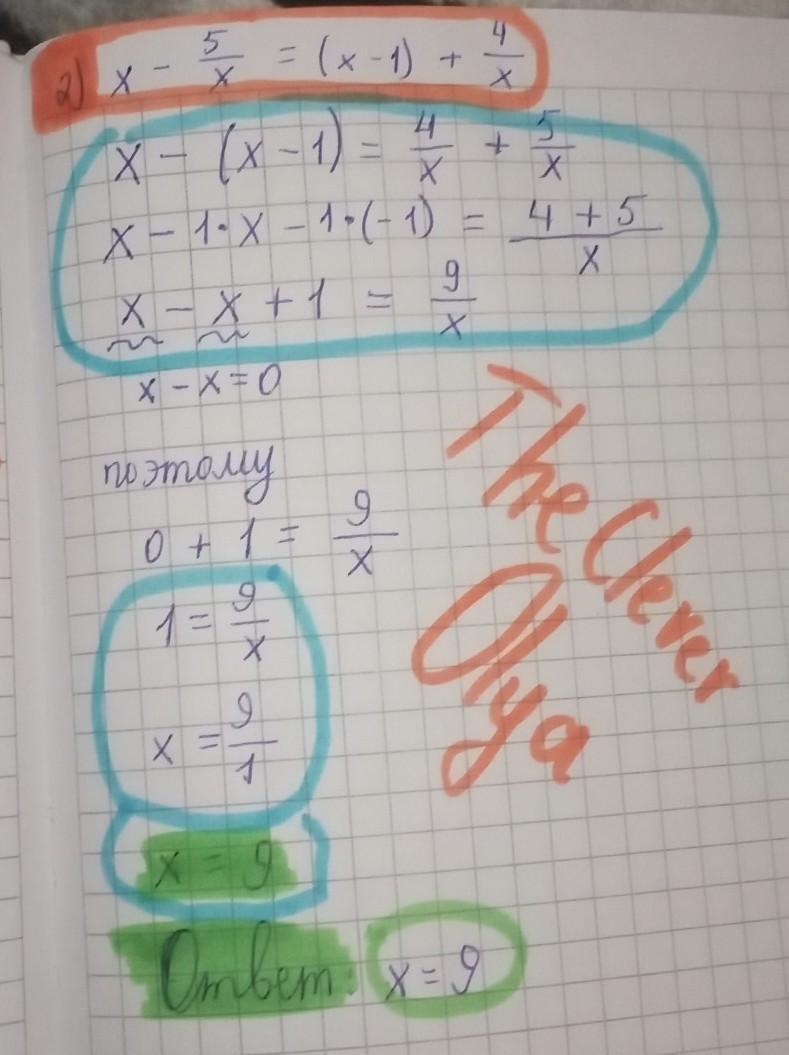 2) x - 5/x = (x-1) + 4/x
x - (x-1) = 4/x + 5/x
x - 1·x - 1·(-1) = (4+5)/x
x - x + 1 = 9/x
x - x = 0
поэтому
0 + 1 = 9/x
1 = 9/x
x = 9/1
x = 9
Ответ: x = 9
The Clever
Olya